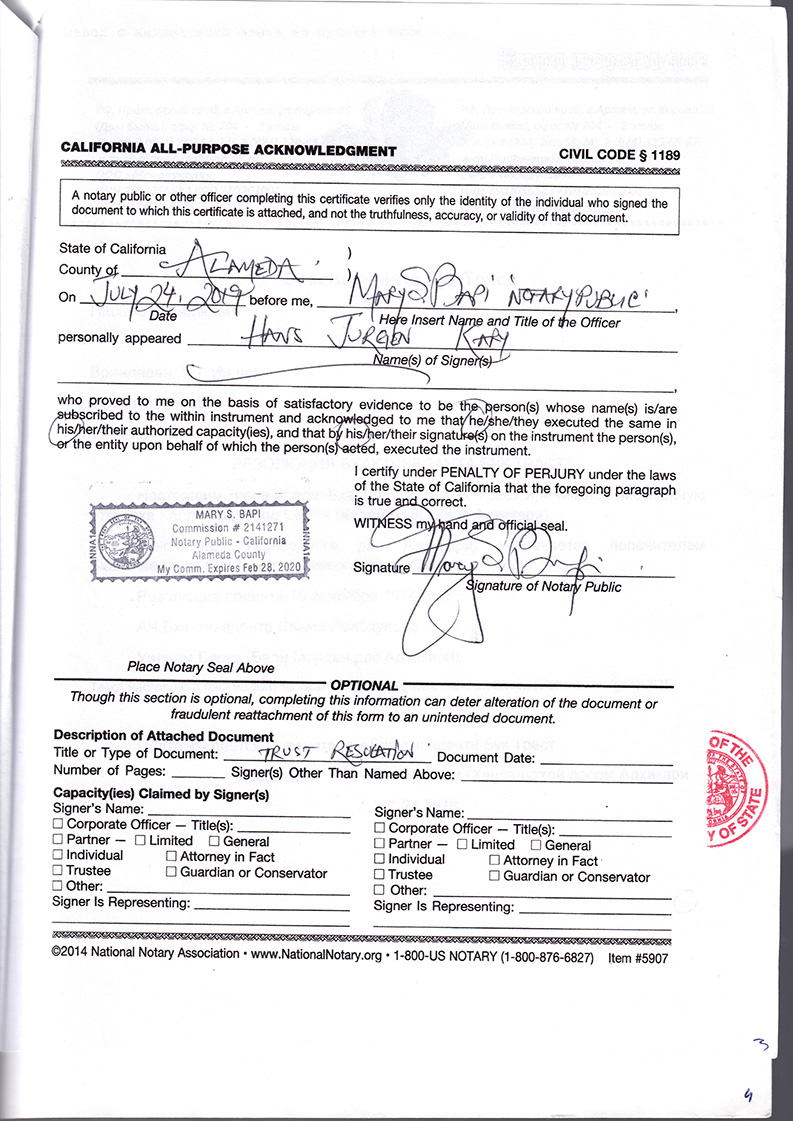 CALIFORNIA ALL-PURPOSE ACKNOWLEDGMENT
CIVIL CODE § 1189
A notary public or other officer completing this certificate verifies only the identity of the individual who signed the
document to which this certificate is attached, and not the truthfulness, accuracy, or validity of that document.
State of California )
County of ALAMEDA )
On JULY 24, 2019 before me, MARY S BAPI NOTARY PUBLIC,
Date Here Insert Name and Title of the Officer
personally appeared HANS JURGEN KARY
Name(s) of Signer(s)
who proved to me on the basis of satisfactory evidence to be the person(s) whose name(s) is/are
subscribed to the within instrument and acknowledged to me that he/she/they executed the same in
his/her/their authorized capacity(ies), and that by his/her/their signature(s) on the instrument the person(s),
or the entity upon behalf of which the person(s) acted, executed the instrument.
I certify under PENALTY OF PERJURY under the laws
of the State of California that the foregoing paragraph
is true and correct.
WITNESS my hand and official seal.
MARY S. BAPI
Commission # 2141271
Notary Public - California
Alameda County
My Comm. Expires Feb 28, 2020
NNA1
Signature Mary S Bapi
Signature of Notary Public
Place Notary Seal Above
OPTIONAL
Though this section is optional, completing this information can deter alteration of the document or
fraudulent reattachment of this form to an unintended document.
Description of Attached Document
Title or Type of Document: TRUST RESOLUTION Document Date:
Number of Pages: Signer(s) Other Than Named Above:
Capacity(ies) Claimed by Signer(s)
Signer's Name: Signer's Name:
☐ Corporate Officer — Title(s): ☐ Corporate Officer — Title(s):
☐ Partner — ☐ Limited ☐ General ☐ Partner — ☐ Limited ☐ General
☐ Individual ☐ Attorney in Fact ☐ Individual ☐ Attorney in Fact
☐ Trustee ☐ Guardian or Conservator ☐ Trustee ☐ Guardian or Conservator
☐ Other: ☐ Other:
Signer Is Representing: Signer Is Representing:
OF THE
Y OF STATE
©2014 National Notary Association • www.NationalNotary.org • 1-800-US NOTARY (1-800-876-6827) Item #5907
3
4